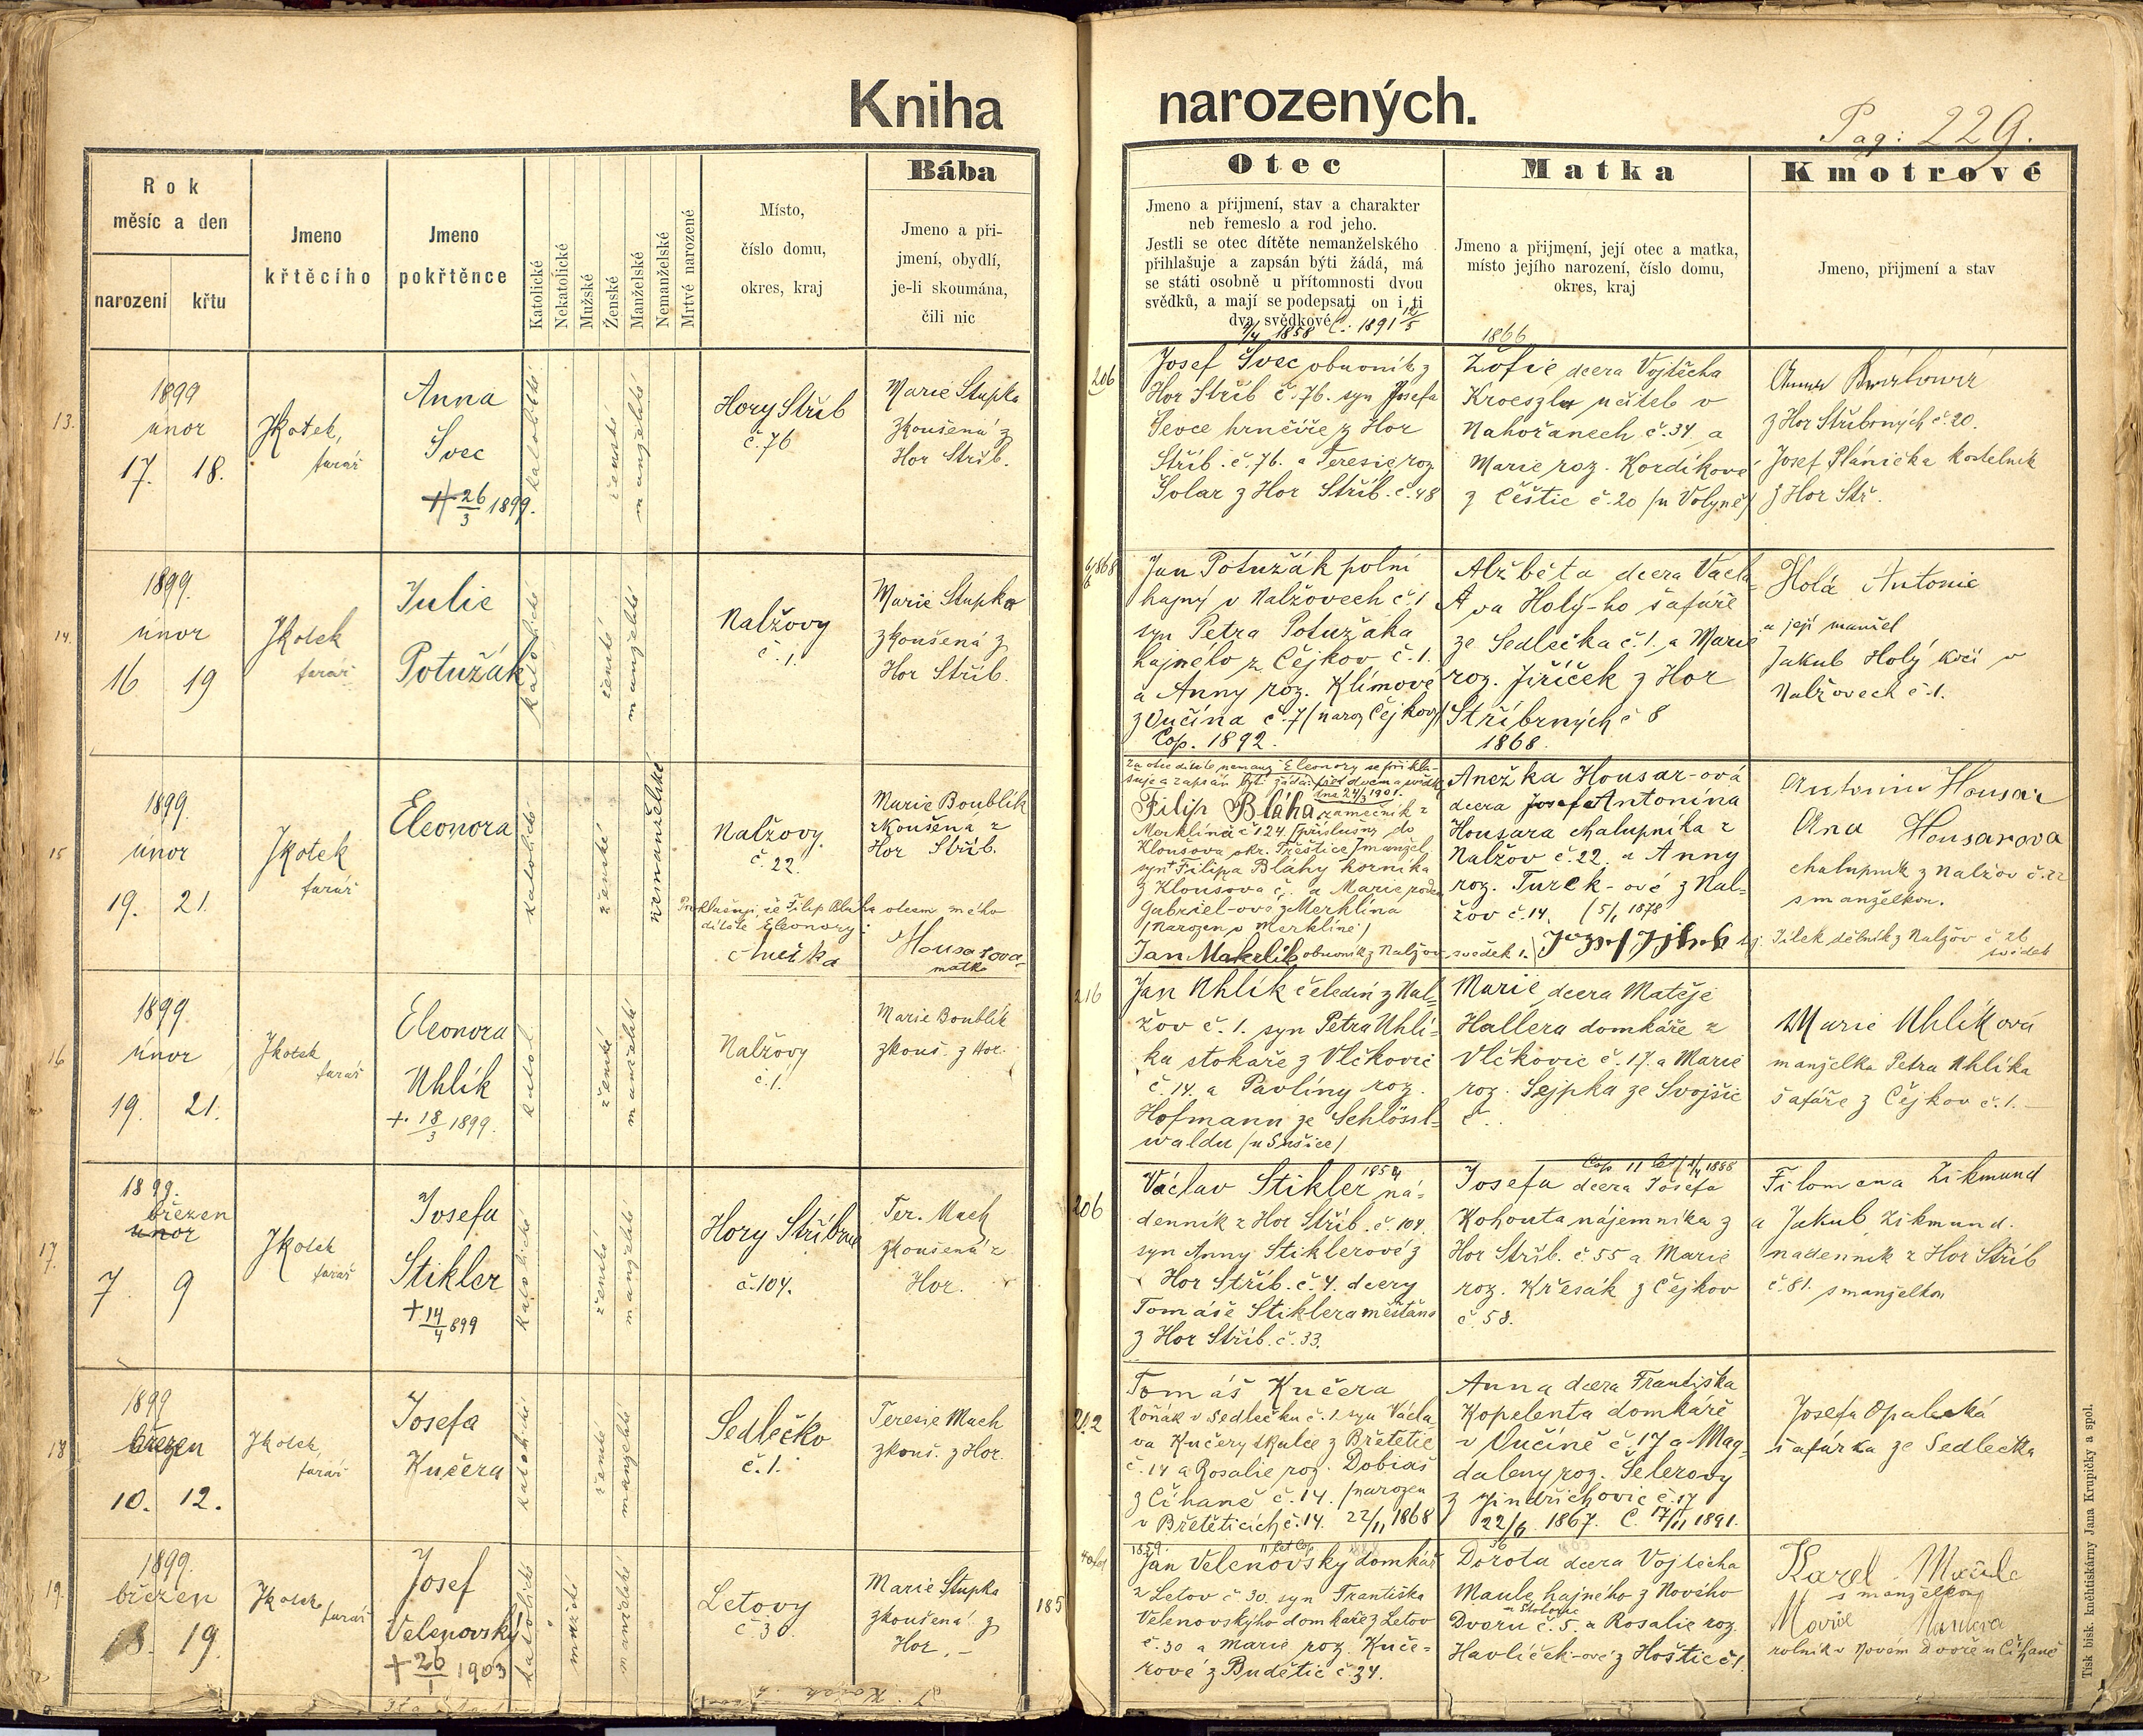 Kniha narozených.
Pag: 229.
Rok
měsíc a den
narození
křtu
Jmeno
křtěcího
Jmeno
pokřtěnce
Katolické
Nekatolické
Mužské
Ženské
Manželské
Nemanželské
Mrtvé narozené
Místo,
číslo domu,
okres, kraj
Bába
Jmeno a při-
jmení, obydlí,
je-li skoumána,
čili nic
Otec
Jmeno a přijmení, stav a charakter
neb řemeslo a rod jeho.
Jestli se otec dítěte nemanželského
přihlašuje a zapsán býti žádá, má
se státi osobně u přítomnosti dvou
svědků, a mají se podepsati on i ti
dva svědkové
Matka
Jmeno a přijmení, její otec a matka,
místo jejího narození, číslo domu,
okres, kraj
Kmotrové
Jmeno, přijmení a stav
13.
1899
únor
17. 18.
Jkotek,
farář
Anna
Švec
+ 26/3 1899.
katolické
ženské
manželské
Hory Stříb
č. 76
Marie Stupka
zkoušená z
Hor Stříb.
206
1858 C. 1891 12/5
Josef Švec obuvník z
Hor Stříb č. 76. syn Josefa
Ševce hrnčíře z Hor
Stříb. č. 76. a Teresie roz.
Šolar z Hor Stříb. č. 48
1866
Žofie dcera Vojtěcha
Kroeszla učitele v
Nahořanech č. 34 a
Marie roz. Kordíkové
z Čestic č. 20 (u Volyně)
Anna
z Hor Stříbrných č. 20.
Josef Plánička kostelník
z Hor Stř.
14.
1899.
únor
16 19
Jkotek
farář
Julie
Potužák
katolické
ženské
manželské
Nalžovy
č. 1.
Marie Stupka
zkoušená z
Hor Stříb.
Jan Potužák polní
hajný v Nalžovech č. 1
syn Petra Potužáka
hajného z Čejkov č. 1.
a Anny roz. Klímové
z Vučína č. 7 (naroz Čejkovy)
Cop. 1892.
Alžběta dcera Václa-
va Holý-ho šafáře
ze Sedlečka č. 1. a Marie
roz. Jiříček z Hor
Stříbrných č 8
1868.
Holá Antonie
a její manžel
Jakub Holý kočí v
Nalžovech č. 1.
15
1899.
únor
19. 21.
Jkotek
farář
Eleonora
katolické
ženské
nemanželské
Nalžovy.
č. 22.
Marie Boublík
zkoušená z
Hor Stříb.
že Filip Bláha otcem mého
dítěte Eleonory:
Anežka Housarova
matka
Za otce dítěte nemanž Eleonory se přihla-
šuje a zapsán býti žádá před dvěma svědky
dne 24/3 1901.
Filip Bláha zámečník z
Merklína č 124. (příslušný do
Kloušova okr. Přeštice) manžel.
syn Filipa Bláhy horníka
z Kloušova č. a Marie rodem
Gabriel-ové z Merklína
(narozen v Merklíně)
Jan Makrlík obuvník z Nalžov svědek 1.
Anežka Housar-ová
dcera Josefa Antonína
Housara chalupníka z
Nalžov č. 22. a Anny
roz. Turek-ové z Nal-
žov č. 14. (5/1 1878
Antonin Housar
Ana Housarova
chalupník z Nalžov č. 22
s manželkou.
Jílek dělník z Nalžov č 26
svědek
16
1899.
únor
19. 21.
Jkotek
farář
Eleonora
Uhlík
+. 18/3 1899.
katol.
ženské
manželské
Nalžovy
č. 1.
Marie Boublík
zkouš. z Hor.
216
Jan Uhlík čeledín z Nal-
žov č. 1. syn Petra Uhlí-
ka stokaře z Vlčkovic
č. 14. a Pavlíny roz.
Hofmann ze Schlössl-
waldu (u Sušice)
Marie dcera Matěje
Hallera domkáře z
Vlčkovic č. 17. a Marie
roz. Sejpka ze Svojšic
č..
Marie Uhlíková
manželka Petra Uhlíka
šafáře z Čejkov č. 1.
17.
1899.
březen
únor
7. 9
Jkotek
farář
Josefa
Stikler
+ 14/4 899
katolické
ženské
manželské
Hory Stříbrné
č. 104.
Ter. Mach
zkoušená z
Hor.
206
Václav Stikler ná-
denník z Hor Stříb. č. 104.
syn Anny Stiklerové z
Hor Stříb. č. 4. dcery
Tomáše Stiklera měšťana
z Hor Stříb. č. 33.
Josefa dcera Josefa
Kohouta nájemníka z
Hor Stříb. č. 55 a Marie
roz. Křesák z Čejkov
č. 58.
Filomena Zikmund
a Jakub Zikmund.
nadenník z Hor Stříb
č. 81. s manželkou
18
1899
březen
10. 12.
Jkotek,
farář
Josefa
Kučera
katolické
ženské
manželské
Sedlečko
č. 1.
Teresie Mach
zkouš. z Hor.
212
Tomáš Kučera
koňák v Sedlečku č. 1. syn Václa
va Kučery skalce z Břetětic
č. 14 a Rosalie roz. Dobiáš
z Číhaně č. 14. (narozen
v Břetěticích č. 14. 22/11 1868
Anna dcera Františka
Kopelenta domkáře
v Vučíně č. 17 a Mag-
daleny roz. Šelerovy
z Jindřichovic č. 17
22/6 1867. C. 17/11 1891.
Josefa Opalecká
šafářka ze Sedlečka
19.
1899.
březen
18. 19.
Jkotek
farář
Josef
Velenovský
+ 26/1 1903
katolické
mužské
manželské
Letovy
č. 30.
Marie Stupka
zkoušená z
Hor.
185
1859.
Jan Velenovský domkář
z Letov č 30. syn Františka
Velenovskýho domkáře z Letov
č. 30 a Marie roz. Kuče-
rové z Budětic č. 34.
Dorota dcera Vojtěcha
Maule hajného z Nového
Dvoru č. 5. a Rosalie roz.
Havlíček-ové z Hoštic č 1.
Karel Maule
s manželkou
Marie Maulova
rolník v Novém Dvoře u Číhaně
Tisk bisk. kněhtiskárny Jana Krupičky a spol.